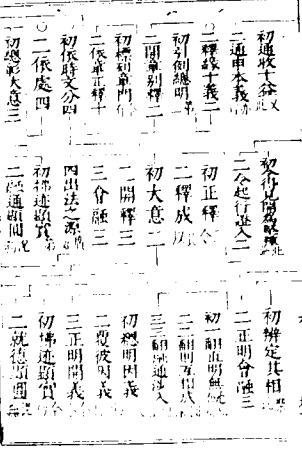 初通收十益
二通申本義
○二釋緣十義二
初引例總明
二開章別釋二
初標列章門
二依章正釋十
初依時文分四
○二依處四
初總彰大意三
初令得見聞為堅種
二令起行證入二
初正釋
二釋成
初大意二
二開釋三
三會融三
四出法之源
初拂迹顯實
二融通顯圓
初辨定其相
二正明會融三
初一翻直明無礙
二二翻則互相成
三三翻融通涉入
初總明因義
二覆彼因義
三正明開義
初拂迹顯實
二就德顯圓